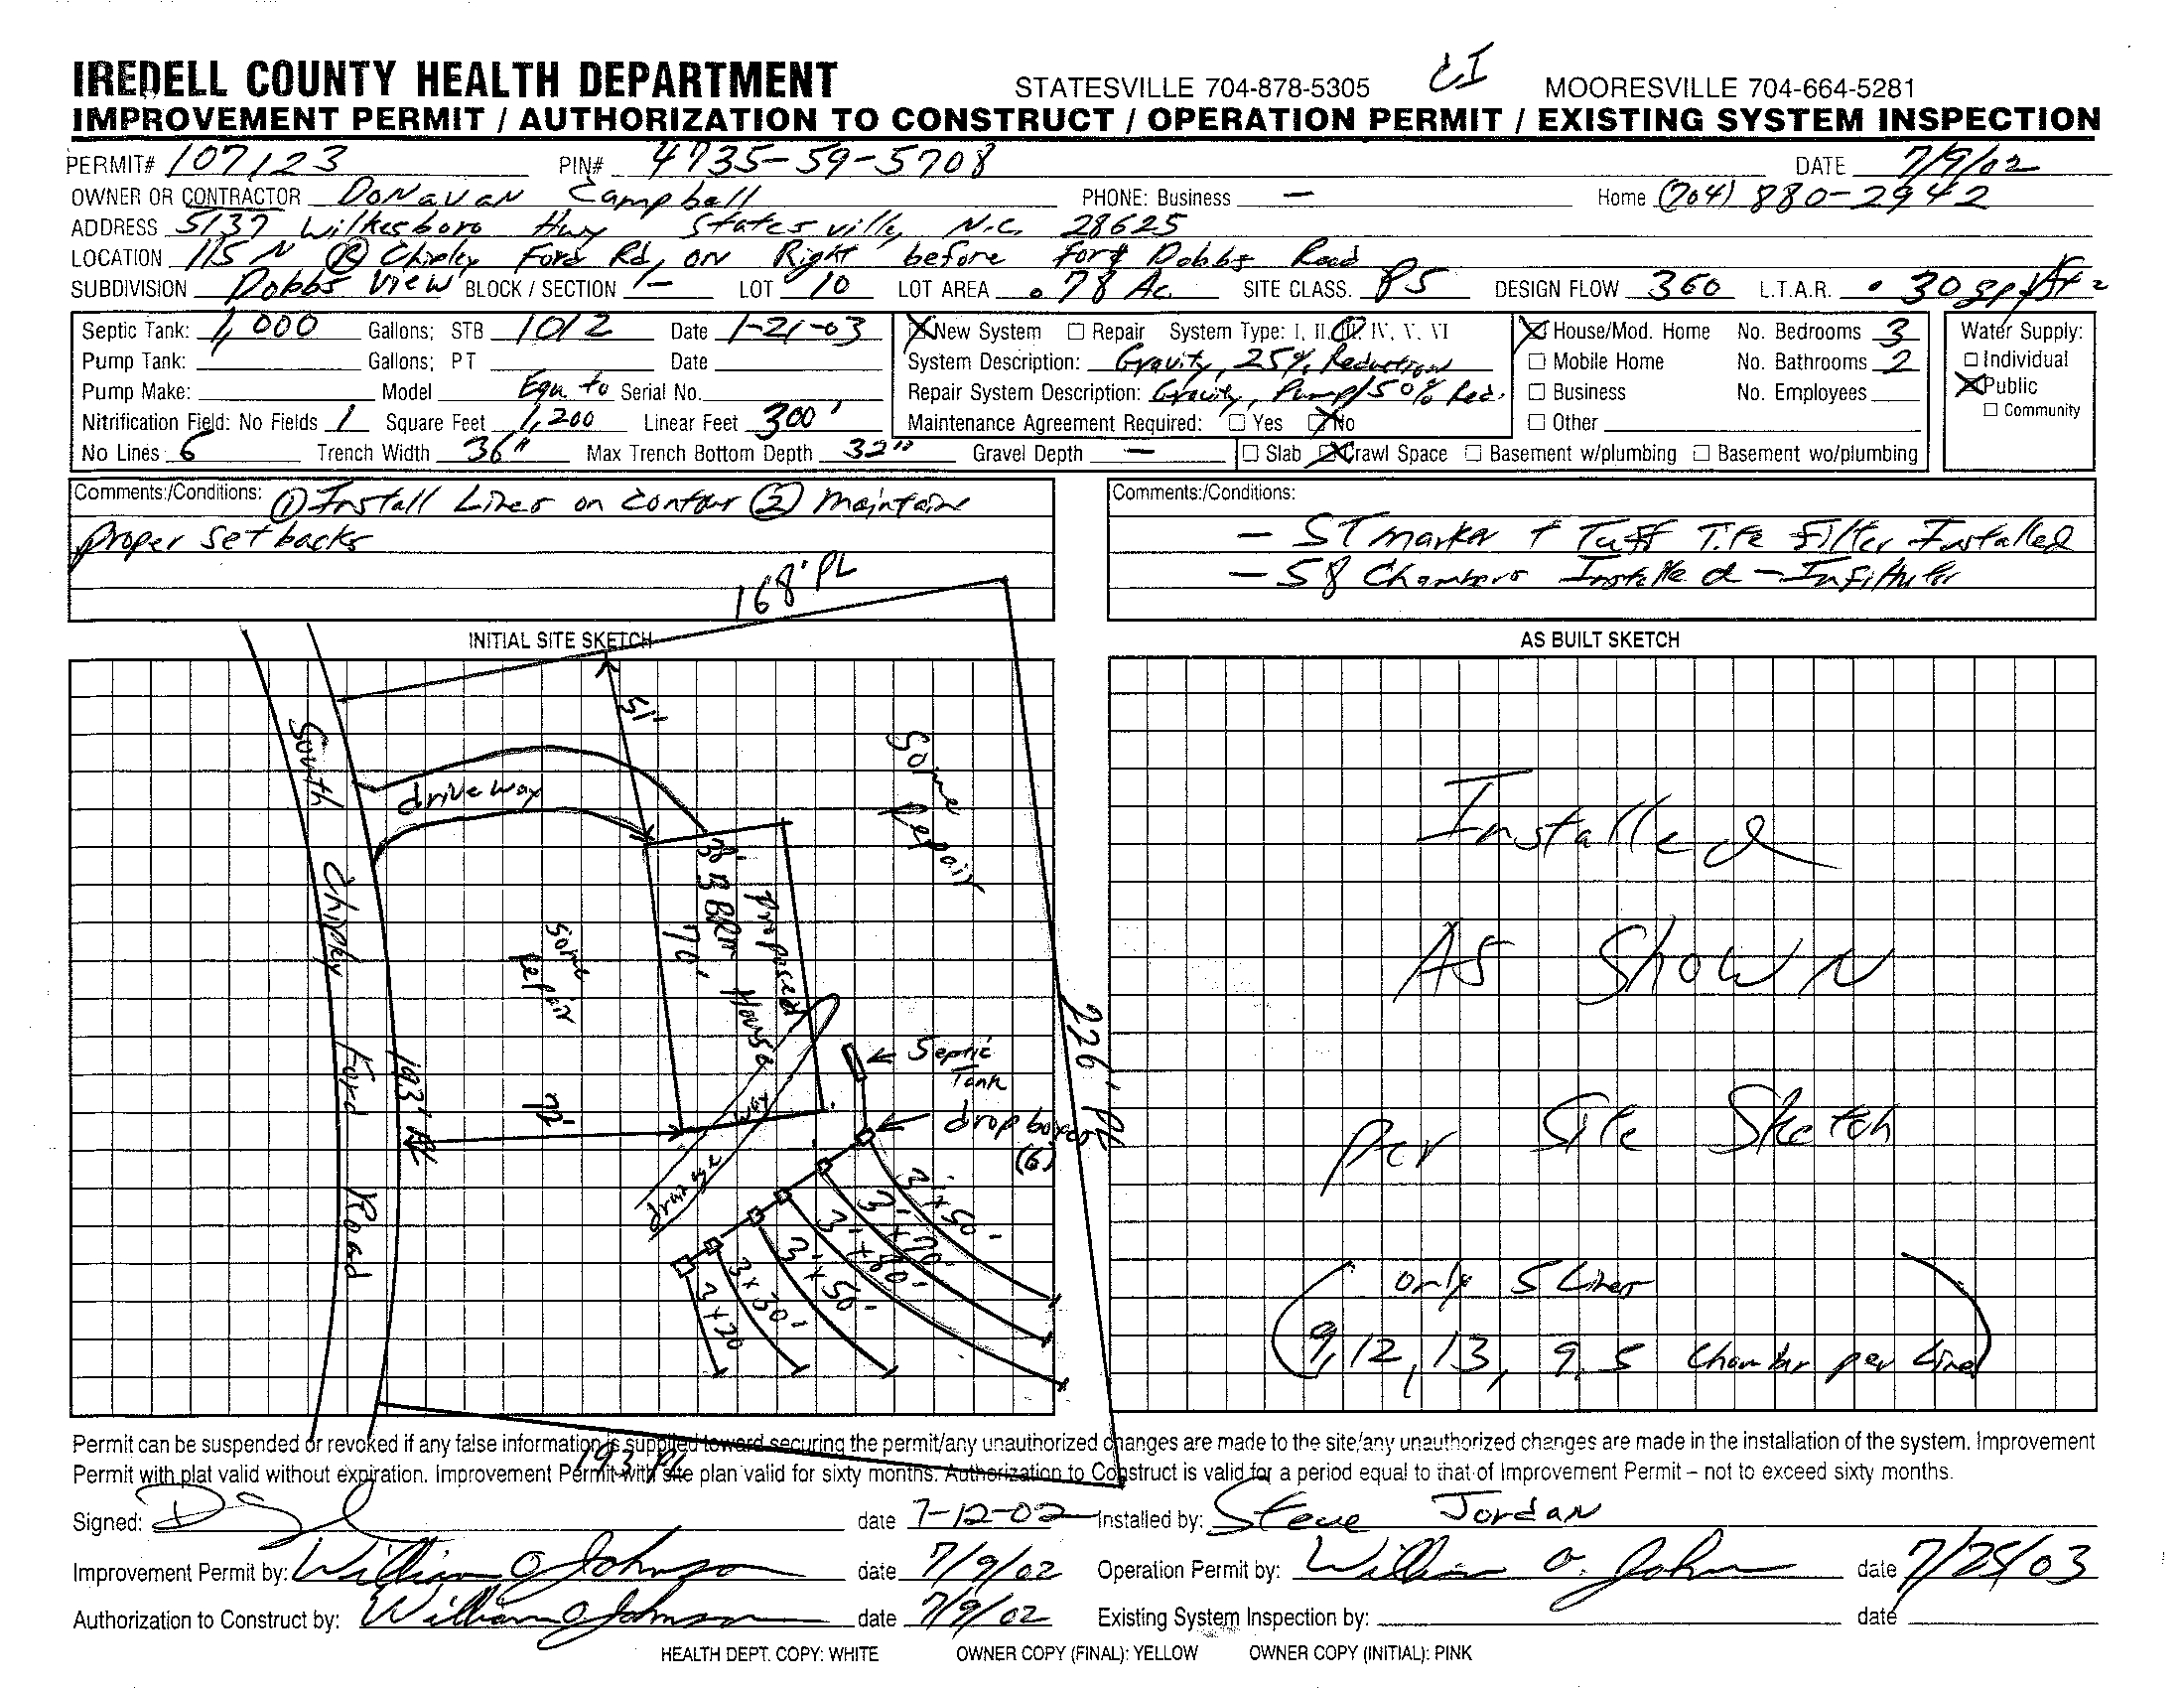 IREDELL COUNTY HEALTH DEPARTMENT STATESVILLE 704-878-5305 CI MOORESVILLE 704-664-5281
IMPROVEMENT PERMIT / AUTHORIZATION TO CONSTRUCT / OPERATION PERMIT / EXISTING SYSTEM INSPECTION
PERMIT# 107123 PIN# 4735-59-5708 DATE 7/9/02
OWNER OR CONTRACTOR Donavan Campbell PHONE: Business — Home (704) 880-2942
ADDRESS 5137 Wilkesboro Hwy Statesville, N.C. 28625
LOCATION 115 N (R) Chipley Ford Rd, on Right before Fort Dobbs Road
SUBDIVISION Dobbs View BLOCK / SECTION - LOT 10 LOT AREA .78 Ac SITE CLASS. PS DESIGN FLOW 360 L.T.A.R. .30 gpd/ft2
Septic Tank: 1,000 Gallons; STB 1012 Date 1-21-03
Pump Tank: Gallons; PT Date
Pump Make: Model Serial No.
Equ to
Nitrification Field: No Fields 1 Square Feet 1,200 Linear Feet 300'
No Lines 6 Trench Width 36" Max Trench Bottom Depth 32" Gravel Depth —
New System Repair System Type: I, II, III, IV, V, VI
System Description: Gravity, 25% Reduction
Repair System Description: Gravity, Pump/50% Red.
Maintenance Agreement Required: Yes No
House/Mod. Home No. Bedrooms 3
Mobile Home No. Bathrooms 2
Business No. Employees
Other
Slab Crawl Space Basement w/plumbing Basement wo/plumbing
Water Supply:
Individual
Public
Community
Comments:/Conditions: (1) Install Lines on contour (2) maintain
proper setbacks
Comments:/Conditions:
- ST marker + Tuff Tite Filter Installed
- 58 Chambers Installed - Infiltrator
INITIAL SITE SKETCH
168' PL
51'
South Chipley Ford Road
driveway
Some Repair
38'
3 BRM
70'
proposed House
Some repair
193' PL
70'
drainage way
Septic Tank
drop boxes (6)
226' PL
3' x 50'
3' x 70'
3' x 80'
3' x 50'
3 x 30'
3 x 20
193' PL
AS BUILT SKETCH
Installed
As Shown
per Site Sketch
(only 5 Lines
9, 12, 13, 9, 5 Chamber per Line)
Permit can be suspended or revoked if any false information is supplied toward securing the permit/any unauthorized changes are made to the site/any unauthorized changes are made in the installation of the system. Improvement
Permit with plat valid without expiration. Improvement Permit with site plan valid for sixty months. Authorization to Construct is valid for a period equal to that of Improvement Permit – not to exceed sixty months.
Signed: date 7-12-02 Installed by: Steve Jordan
Improvement Permit by: William O Johnson date 7/9/02 Operation Permit by: William O. Johnson date 7/25/03
Authorization to Construct by: William O Johnson date 7/9/02 Existing System Inspection by: date
HEALTH DEPT. COPY: WHITE OWNER COPY (FINAL): YELLOW OWNER COPY (INITIAL): PINK